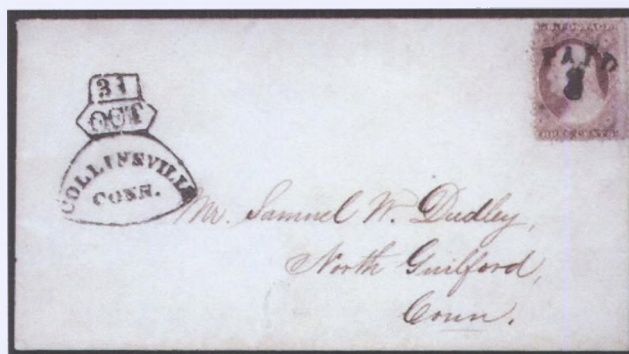 31
OCT
COLLINSVILLE
CONN.
PAID
3
THREE CENTS
Mr. Samuel W. Dudley,
North Guilford,
Conn.